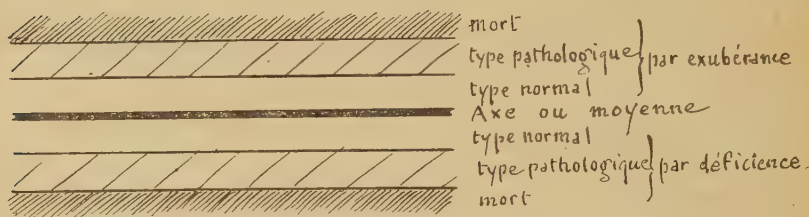 mort
type pathologique } par exubérance
type normal
Axe ou moyenne
type normal
type pathologique } par déficience.
mort